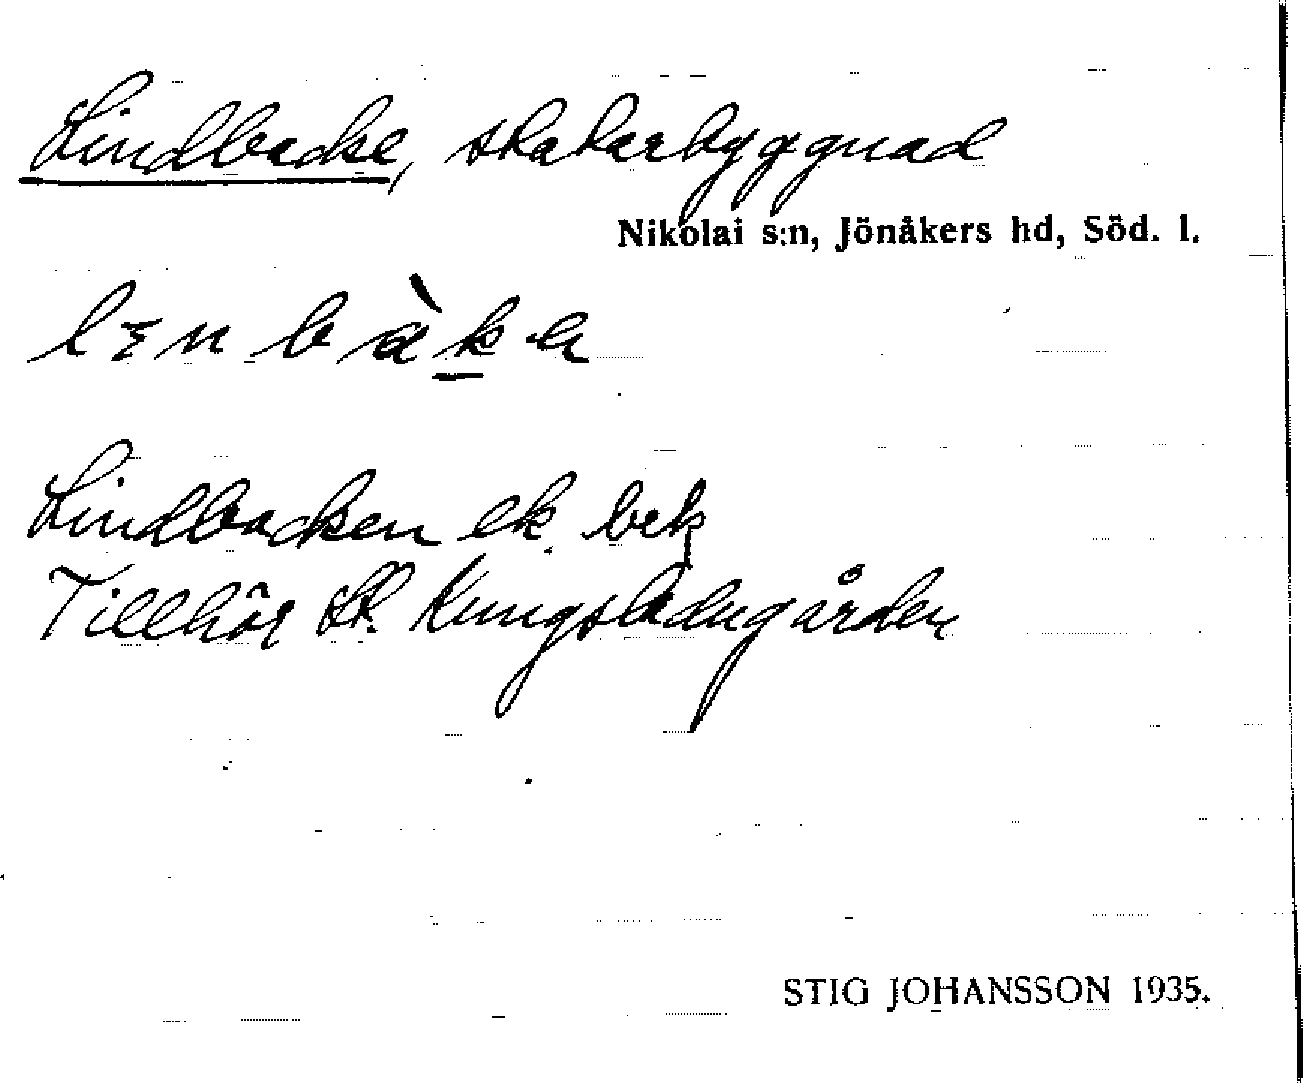 Lindbacke, statarbyggnad
Nikolai s:n, Jönåkers hd, Söd. l.
Lindbacken ek bek
Tillhör St. Kungsladugården
STIG JOHANSSON 1935.